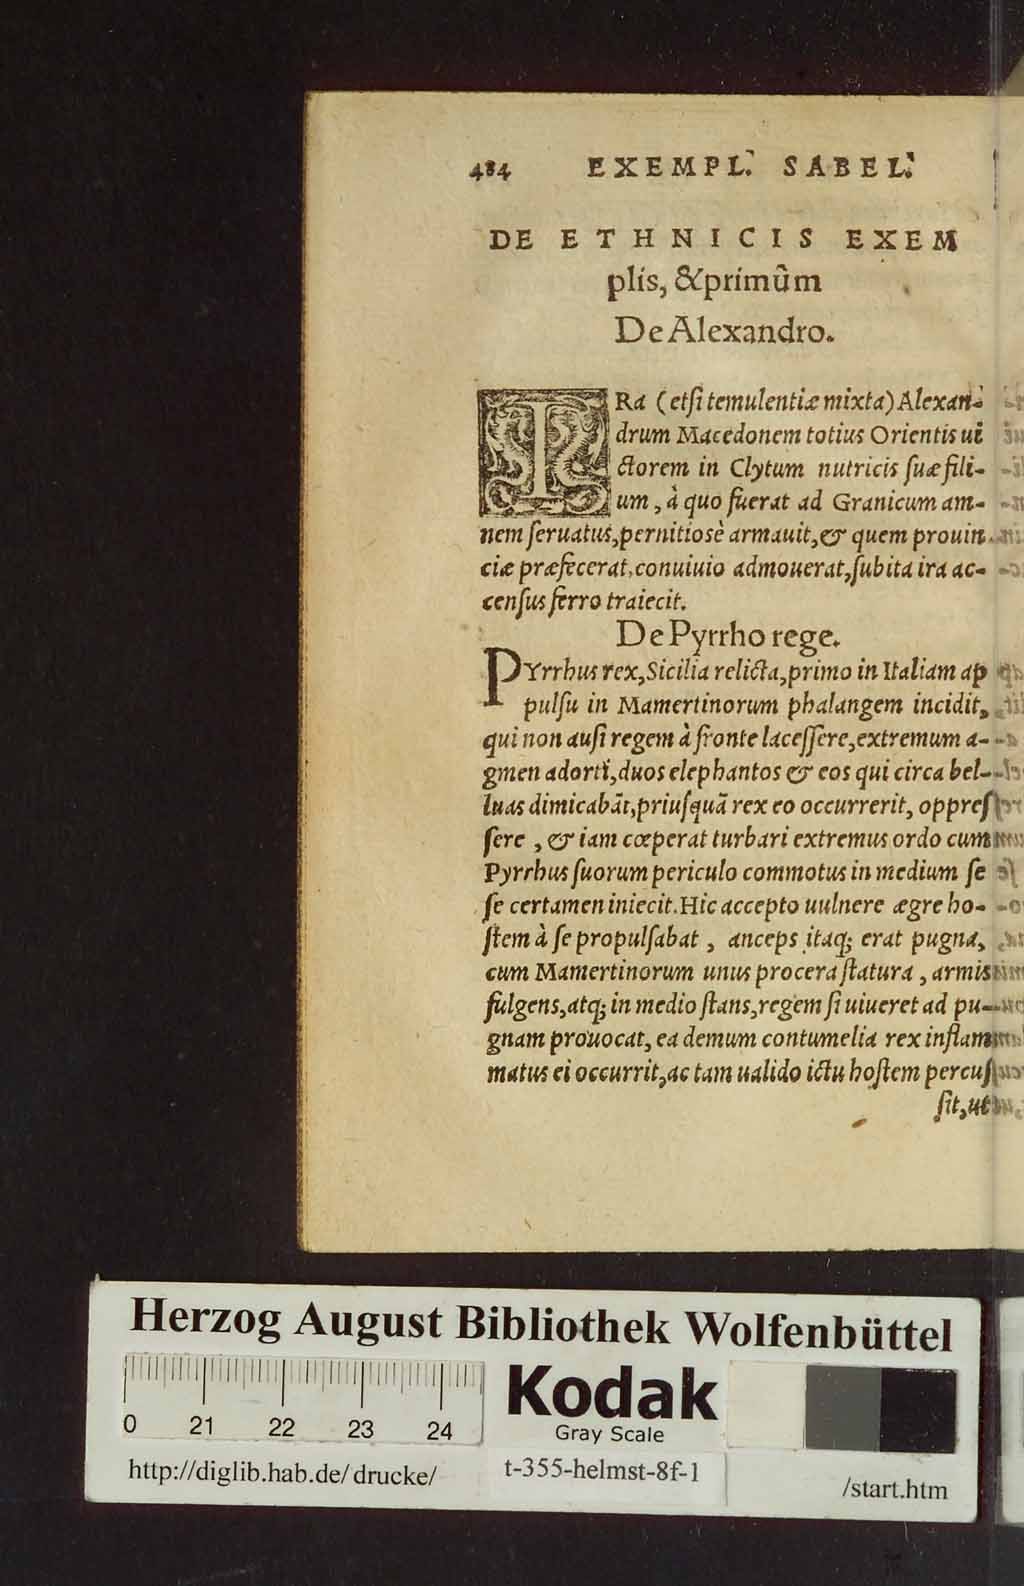 484 EXEMPL. SABEL.
DE ETHNICIS EXEM
plis, & primùm
De Alexandro.
IRa (etſi temulentiæ mixta) Alexan-
drum Macedonem totius Orientis ui
ctorem in Clytum nutricis ſuæ fili-
um, à quo fuerat ad Granicum am-
nem ſeruatus, pernitioſè armauit, & quem prouin
ciæ præfecerat, conuiuio admouerat, ſubita ira ac-
cenſus ferro traiecit.
De Pyrrho rege.
PYrrhus rex, Sicilia relicta, primo in Italiam ap
pulſu in Mamertinorum phalangem incidit,
qui non auſi regem à fronte laceſſere, extremum a-
gmen adorti, duos elephantos & eos qui circa bel-
luas dimicabāt, priuſquā rex eo occurrerit, oppreſ
ſere, & iam cœperat turbari extremus ordo cum
Pyrrhus ſuorum periculo commotus in medium ſe
ſe certamen iniecit. Hic accepto uulnere ægre ho-
ſtem à ſe propulſabat, anceps itaq; erat pugna,
cum Mamertinorum unus procera ſtatura, armis
fulgens, atq; in medio ſtans, regem ſi uiueret ad pu-
gnam prouocat, ea demum contumelia rex inflam
matus ei occurrit, ac tam ualido ictu hoſtem percuſ
ſit, ut
Herzog August Bibliothek Wolfenbüttel
0 21 22 23 24
Kodak
Gray Scale
http://diglib.hab.de/drucke/ t-355-helmst-8f-1 /start.htm